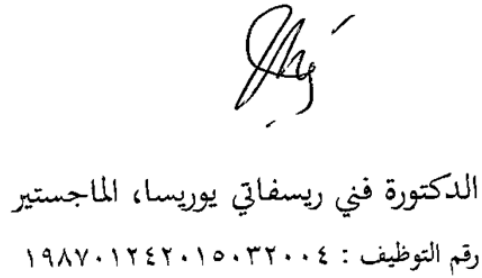 الدكتورة فني ريسفاتي يوريسا، الماجستير
رقم التوظيف : ١٩٨٧٠١٢٤٢٠١٥٠٣٢٠٠٤